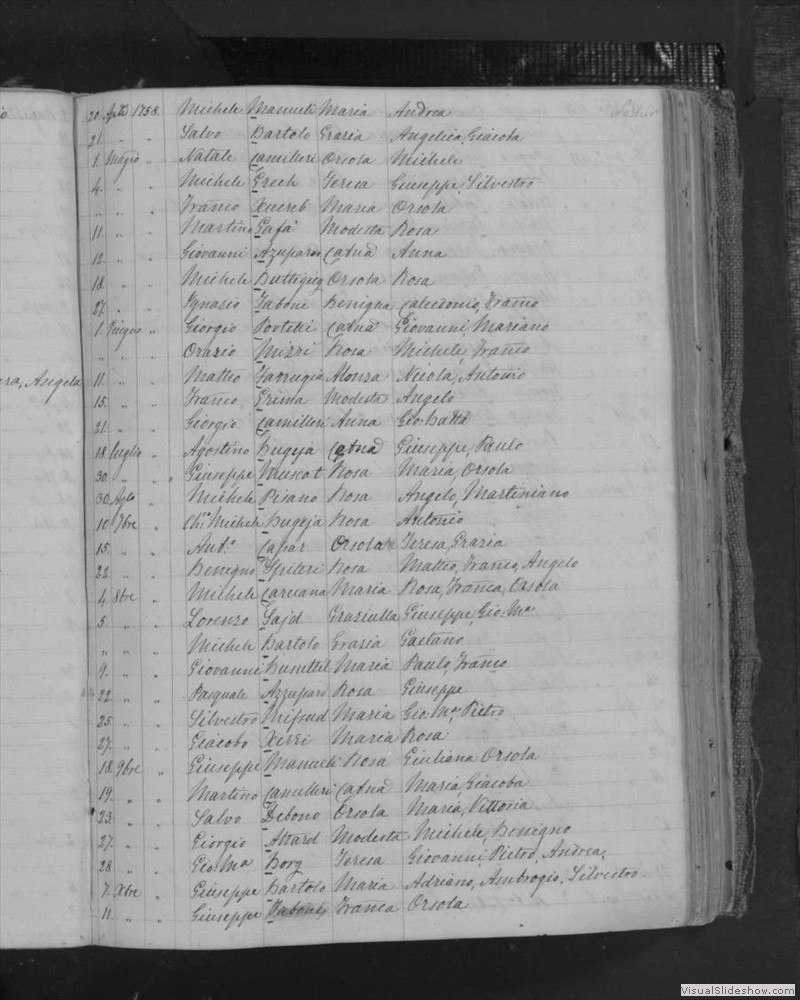 20. Aple 1758. Michele Manueli Maria Andrea
21. " " Salvo Bartolo Grazia Angelica, Giacola
1. Magio " Natale Camilleri Orsola Michele
4. " " Michele Grech Teresa Giuseppe, Silvestro
" " " Franco Xuereb Maria Orsola
11. " " Martino Gafa' Modesta Rosa
12. " " Giovanni Azupardo Catna Anna
18. " " Michele Buttegieg Orsola Rosa
27. " " Ignazio Tabone Benigna Calcedonio, Franco
1. Giugno " Giorgio Portelli Catna Giovanni, Mariano
" " " Orazio Mizzi Rosa Michele, Franco
era, Angela
11. " " Matteo Farrugia Alonza Nicola, Antonio
15. " " Franco Grima Modesta Angelo
21. " " Giorgio Camilleri Anna Gio:Batta
18. Luglio " Agostino Bugeja Catna Giuseppe, Paulo
30. " " Giuseppe Muscat Rosa Maria, Orsola
30. Agto " Michele Pisano Rosa Angelo, Martiniano
10. 7bre " Chi.º Michele Bugeja Rosa Antonio
15. " " Ant.º Capar Orsola Teresa, Grazia
22. " " Benegno Spiteri Rosa Matteo, Franco, Angelo
4. 8bre " Michele Caruana Maria Rosa, Franca, Orsola
5. " " Lorenzo Sajd Graziulla Giuseppe, Gio: Ma
" " " Michele Bartolo Grazia Gaetano
9. " " Giovanni Busuttil Maria Paulo, Franco
22. " " Pasquale Azzupard Rosa Giuseppe
25. " " Silvestro Mifsud Maria Gio: Ma, Pietro
27. " " Giacobo Xerri Maria Rosa
18. 9bre " Giuseppe Manueli Rosa Giuliana Orsola
19. " " Martino Camilleri Catna Maria, Giacoba
23. " " Salvo Debono Orsola Maria, Vittoria
27. " " Giorgio Attard Modesta Michele, Benigno
28. " " Gio: Ma Borg Teresa Giovanni Pietro, Andrea,
7. Xbre " Giuseppe Bartolo Maria Adriano, Ambrogio, Silvestro
11. " " Giuseppe Tabone Franca Orsola
VisualSlideshow.com